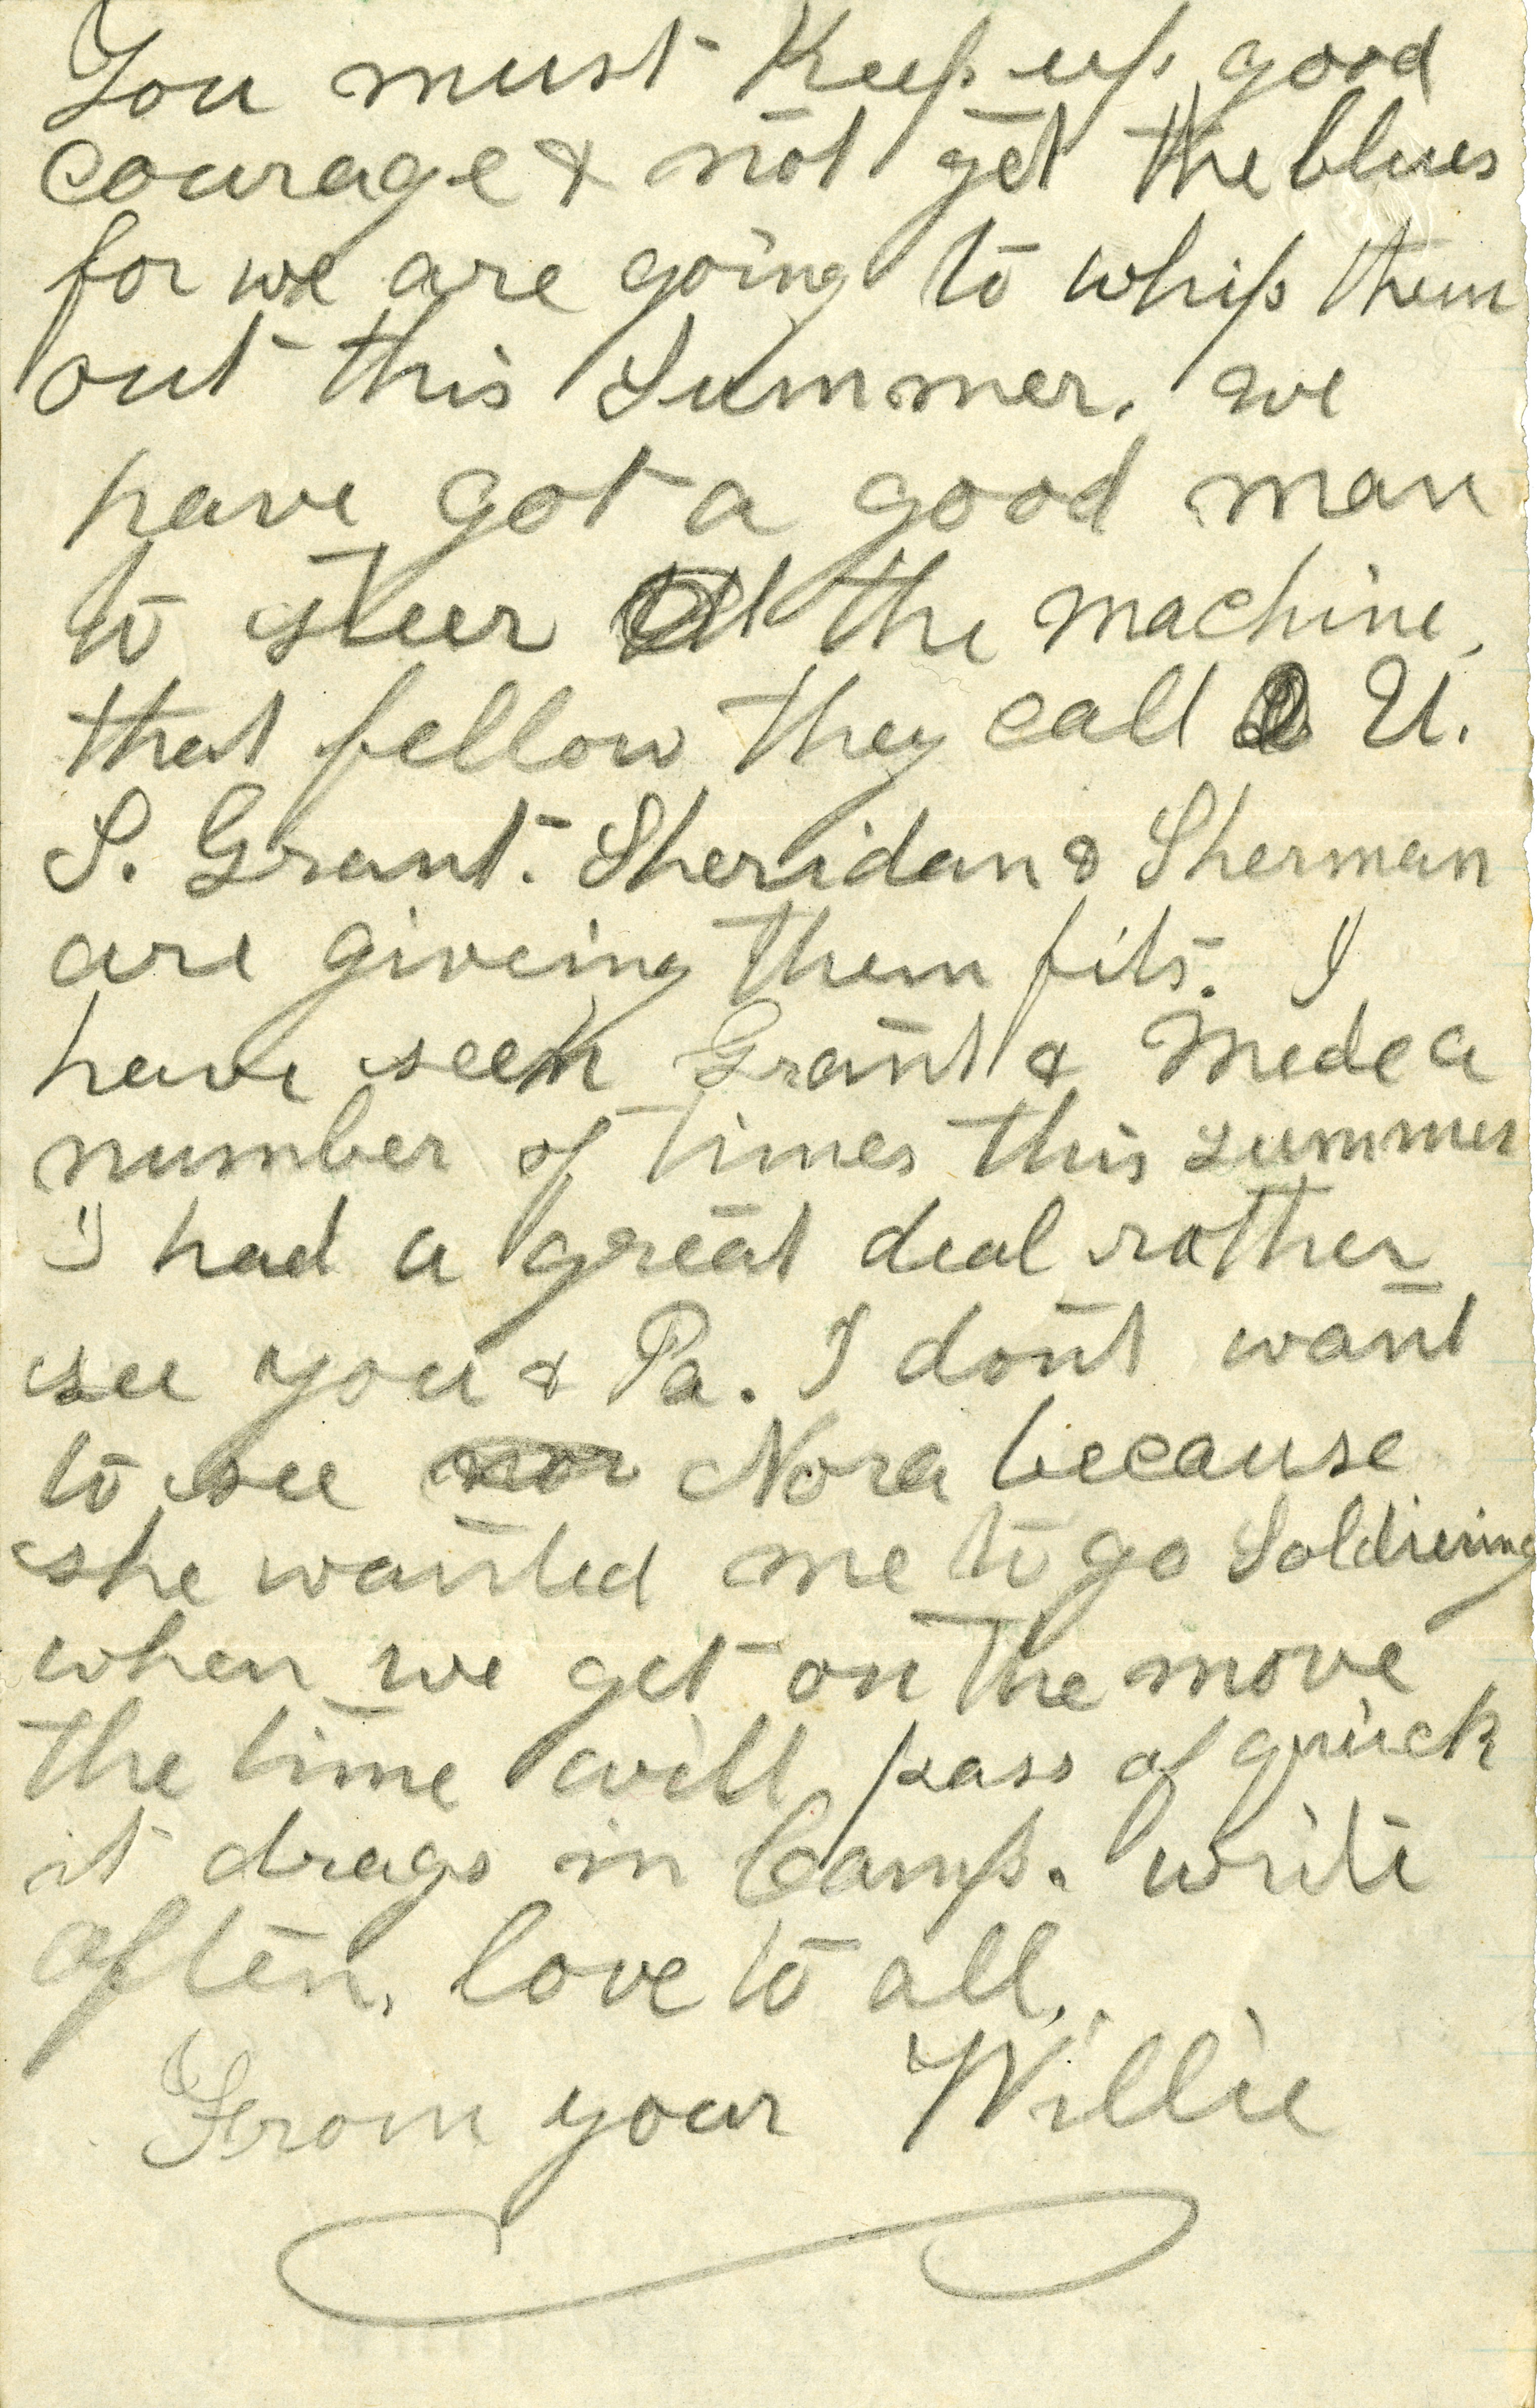 You must Keep up good
courage & not get the blues
for we are going to whip them
out this Summer. we
have got a good man
to steer the machine,
that fellow they call U.
S. Grant. Sheridan & Sherman
are giveing them fits. I
have seen Grant & Mede a
number of times this summer
I had a great deal rother
see you & Pa. I dont want
to see Nora because
she wanted me to go Soldiering
when we get on the move
the time will pass of quick
it drags in Camp. write
often, love to all.
From your Willie